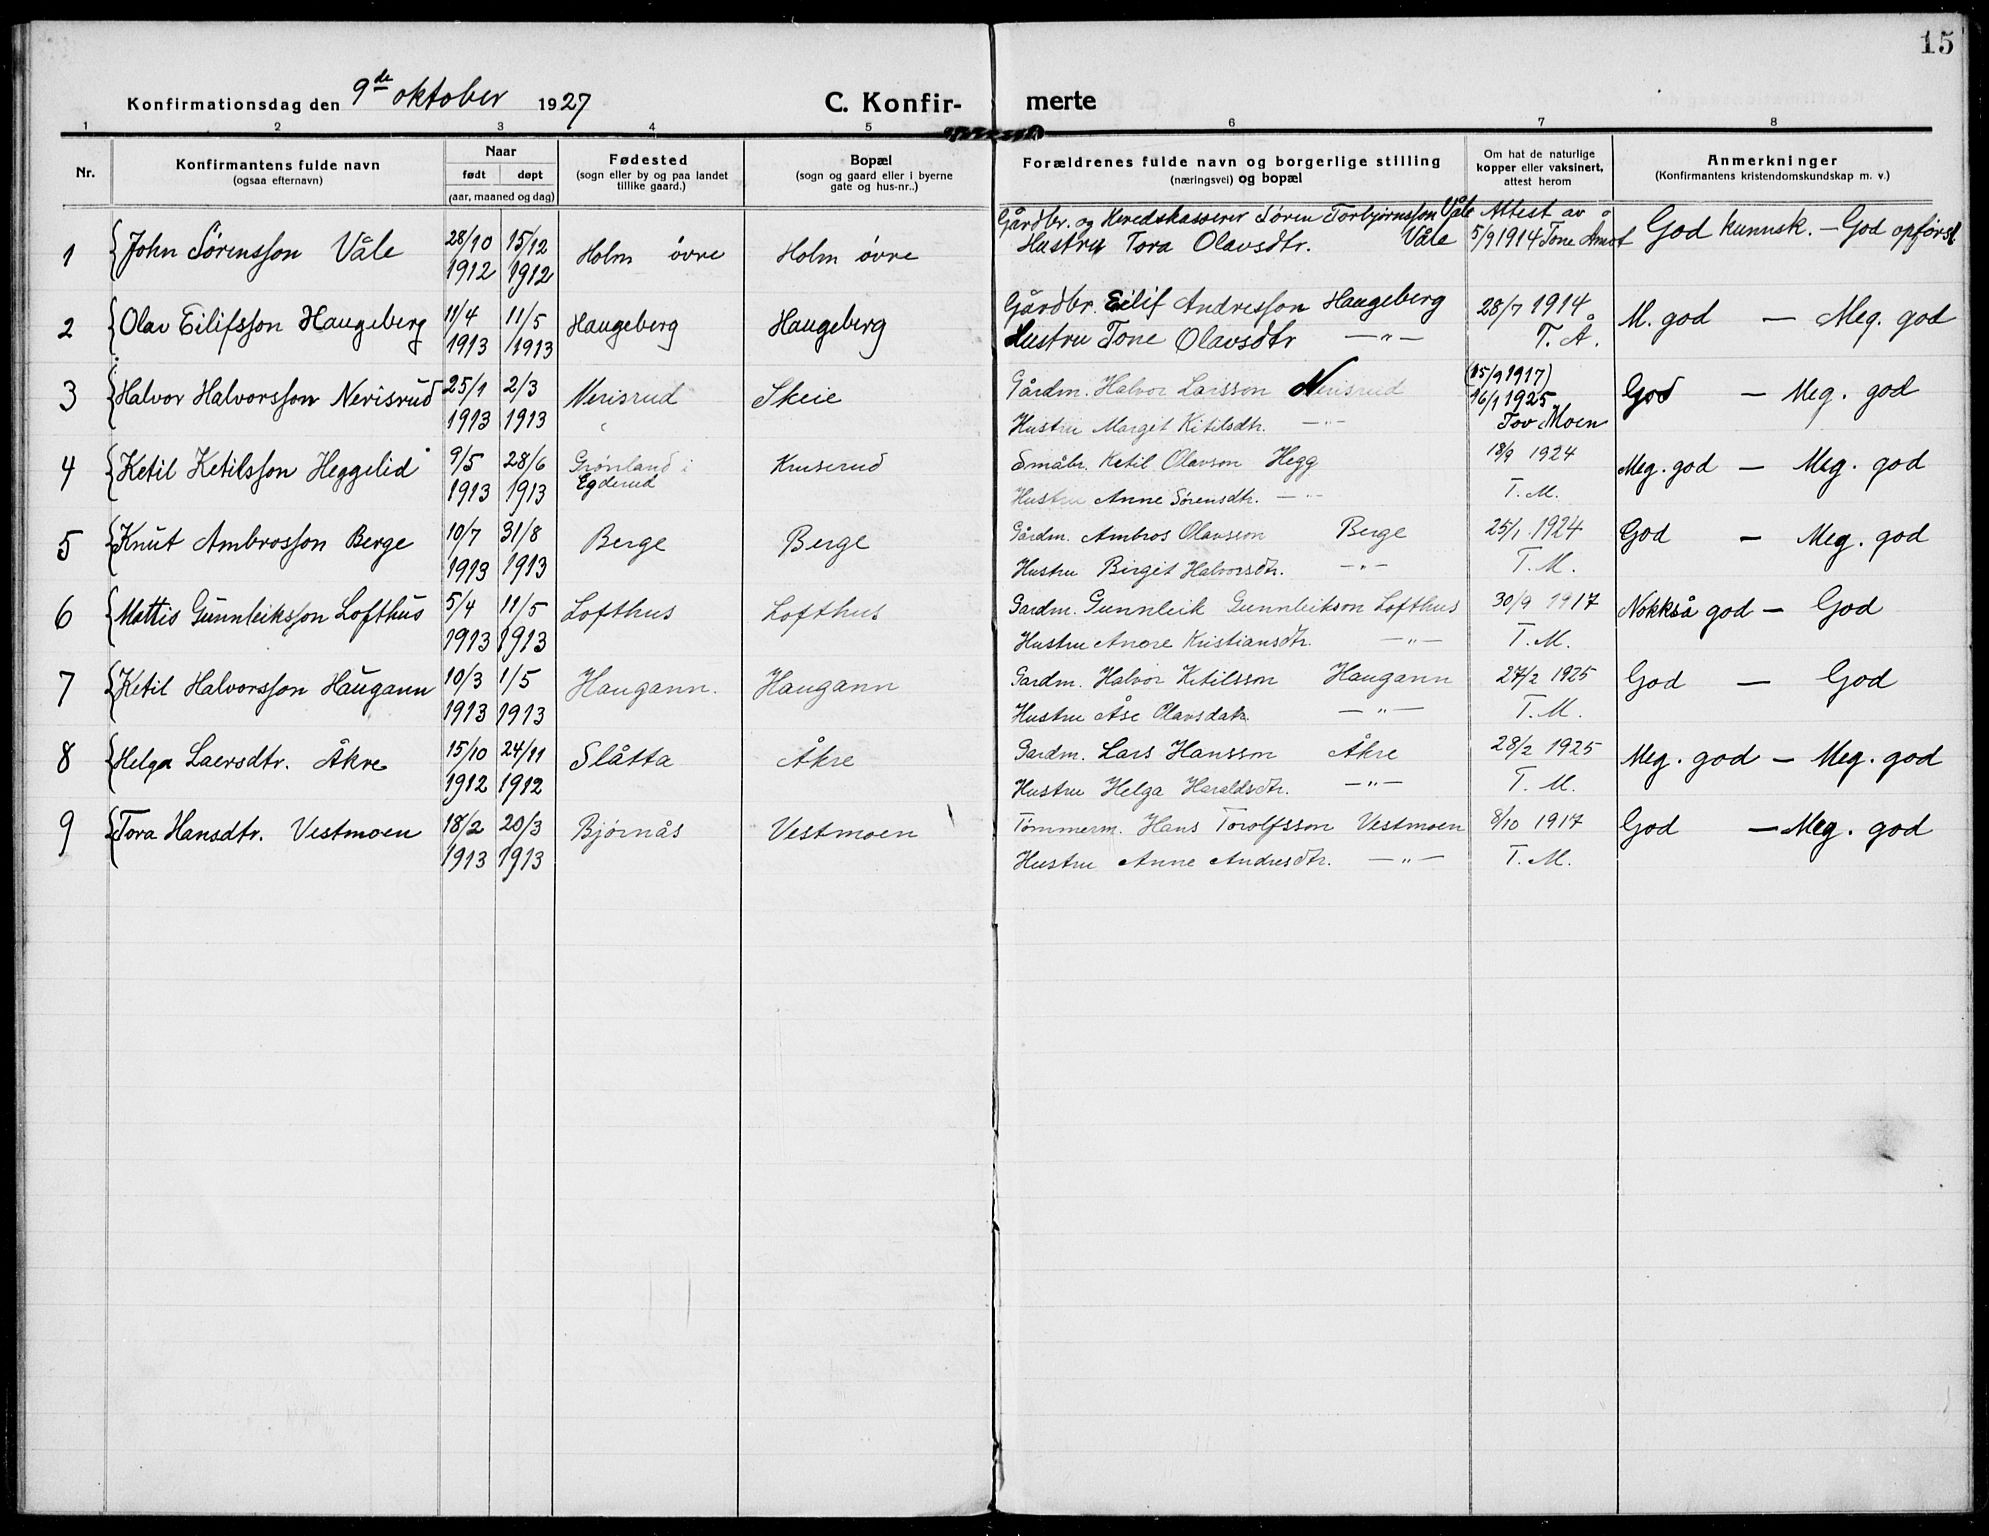 15
Konfirmationsdag den 9de oktober 1927
C. Konfir- merte
1 2 3 4 5 6 7 8
Nr.
Konfirmantens fulde navn
(ogsaa efternavn)
Naar
født døpt
(aar, maaned og dag)
Fødested
(sogn eller by og paa landet
tillike gaard.)
Bopæl
(sogn og gaard eller i byerne
gate og hus-nr..)
Forældrenes fulde navn og borgerlige stilling
(næringsvei) og bopæl
Om hat de naturlige
kopper eller vaksinert,
attest herom
Anmerkninger
(Konfirmantens kristendomskundskap m. v.)
Gårdbr. og Heredskasserer Søren Torbjørnsson Våle Attest av
1 John Sørensson Våle 28/10 15/12 Holm øvre Holm øvre Hustru Tora Olavsdtr. Våle 5/9 1914 Tone Åmot God kunnsk. — God opførsl
1912 1912
Gårdbr. Eilif Andresson Haugeberg 28/7 1914
2 Olav Eilifsson Haugeberg 11/4 11/5 Haugeberg Haugeberg M. god — Meg. god
1913 1913 Hustru Tone Olavsdtr —"— T. Å.
(15/9 1917)
3 Halvor Halvorsson Nerisrud 25/1 2/3 Nerisrud Skeie Gårdm. Halvor Larsson Nerisrud 16/1 1925 God — Meg. god
1913 1913 Hustru Marget Kitilsdtr. —"— Tov Moen
4 Ketil Ketilsson Heggelid 9/5 28/6 Grønland i Kruserud Småbr. Ketil Olavson Hegg 18/9 1924 Meg. god — Meg. god
1913 1913 Egderud Hustru Anne Sørensdtr. —"— T. M.
5 Knut Ambrosson Berge 10/7 31/8 Berge Berge Gårdm. Ambros Olavsson Berge 25/1 1924 God — Meg. god
1913 1913 Hustru Birgit Halvorsdtr. —"— T. M.
6 Mattis Gunnleiksson Lofthus 5/4 11/5 Lofthus Lofthus Gardm. Gunnleik Gunnleikson Lofthus 30/9 1917 Nokkså god — God
1913 1913 Hustru Anore Kristiansdtr. —"— T. M.
7 Ketil Halvorsson Haugann 10/3 1/5 Haugann. Haugann Gardm. Halvor Kitilsson Haugann 27/2 1925 God — God
1913 1913 Hustru Åse Olavsdatr. —"— T. M.
8 Helga Laersdtr. Åkre 15/10 24/11 Slåtta Åkre Gardm. Lars Hansson Åkre 28/2 1925 Meg. god — Meg. god
1912 1912 Hustru Helga Haraldsdtr. —"— T. M.
9 Tora Hansdtr. Vestmoen 18/2 20/3 Bjørnås Vestmoen Tømmerm. Hans Torolfsson Vestmoen 8/10 1917 God — Meg. god
1913 1913 Hustru Anne Andresdtr. —"— T. M.